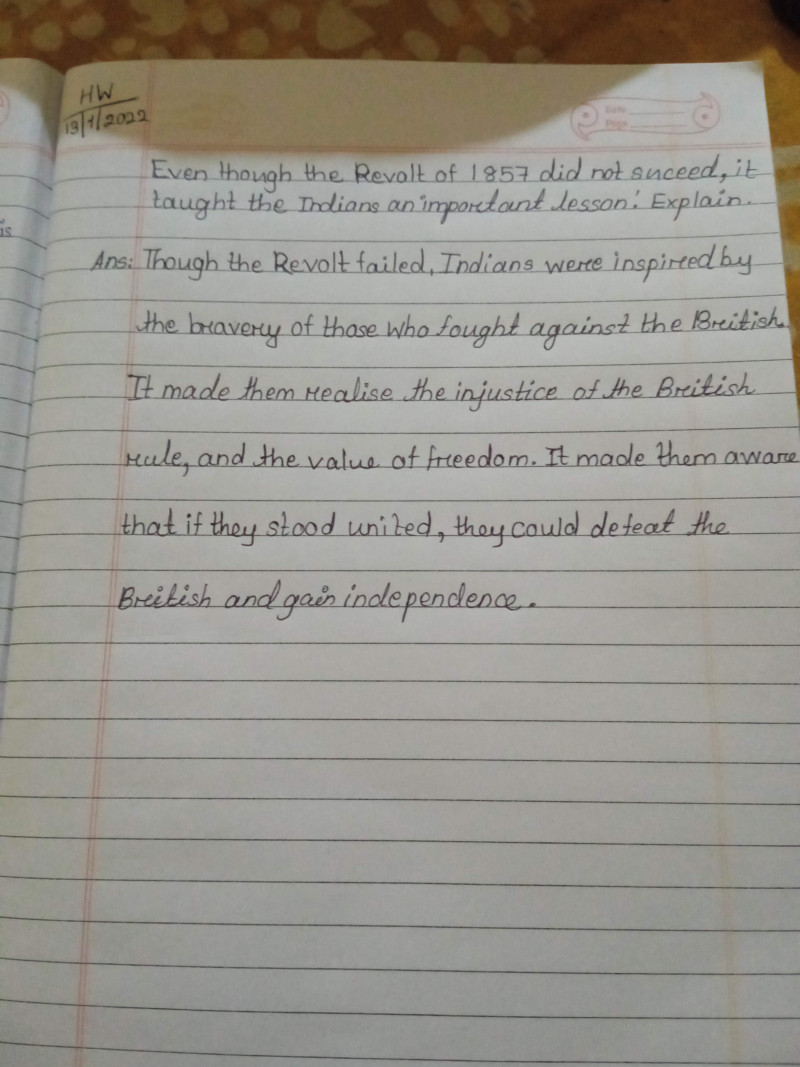 HW
13/1/2022
Date
Page
Even though the Revolt of 1857 did not suceed, it
taught the Indians an important lesson.' Explain.
is
Ans: Though the Revolt failed, Indians were inspired by
the bravery of those who fought against the British.
It made them realise the injustice of the British
rule, and the value of freedom. It made them aware
that if they stood united, they could defeat the
British and gain independence.